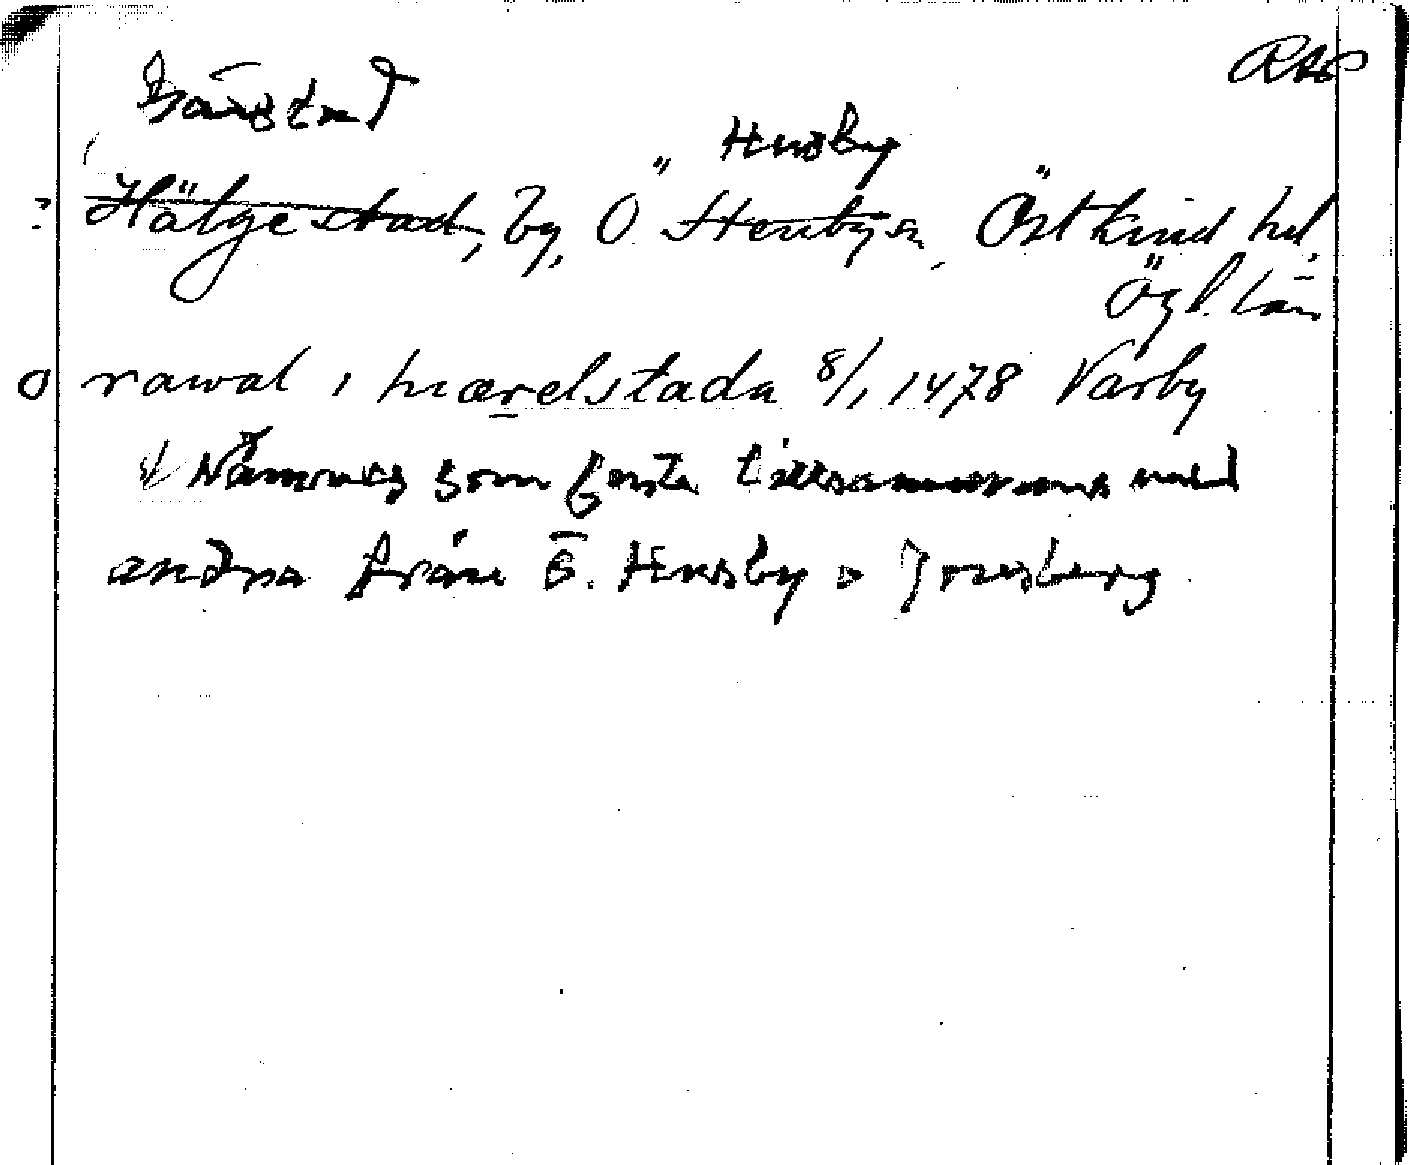 RAP
Husby
? Hälgestad, by, Ö Stenby sn, Östkind hd,
Ögl. län
o rawal i hwærelstada 8/1 1478 Vårby
Nämnes som första tillsammans med
andra från Ö. Husby o Jonsberg